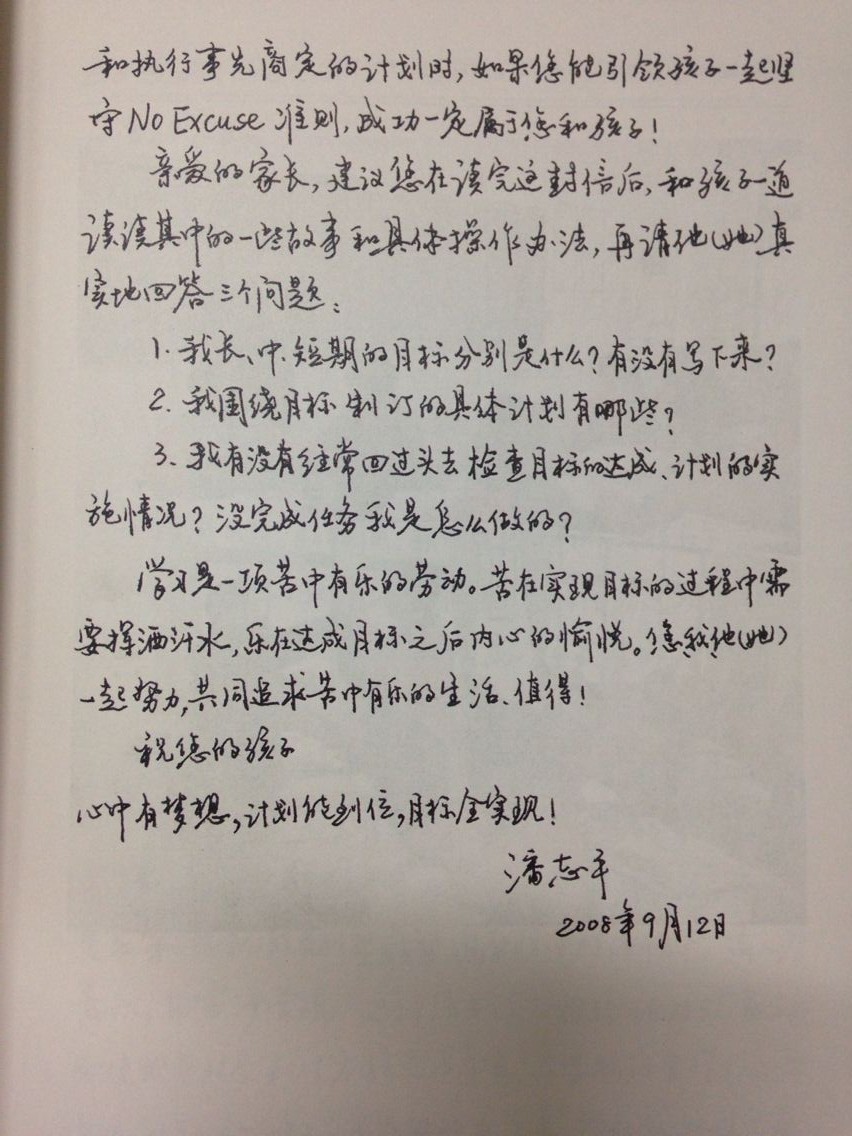 和执行事先商定的计划时，如果您能引领孩子一起坚
守No Excuse准则，成功一定属于您和孩子！
亲爱的家长，建议您在读完这封信后，和孩子一道
读读其中的一些故事和具体操作办法，再请他（她）真
实地回答三个问题：
1. 我长、中、短期的目标分别是什么？有没有写下来？
2. 我围绕目标制订的具体计划有哪些？
3、我有没有经常回过头去检查目标的达成、计划的实
施情况？没完成任务我是怎么做的？
学习是一项苦中有乐的劳动。苦在实现目标的过程中需
要挥洒汗水，乐在达成目标之后内心的愉悦。您我他（她）
一起努力，共同追求苦中有乐的生活、值得！
祝您的孩子
心中有梦想，计划能到位，目标全实现！
潘志平
2008年9月12日